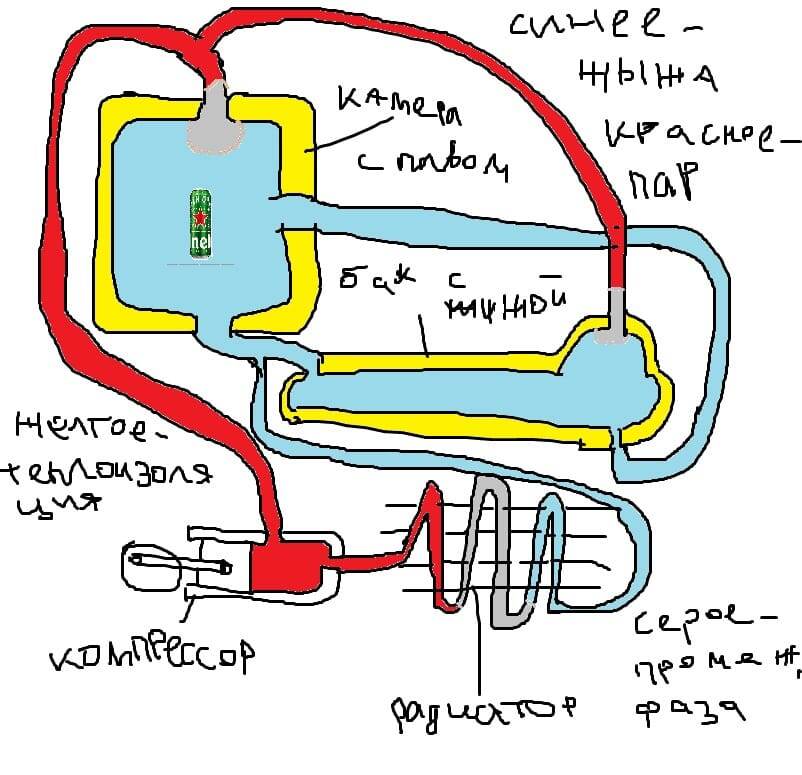 синее -
жыжа
красное -
пар
камера
с пивом
nel
бак с
жижой
желтое -
теплоизоля
ция
компрессор
радиатор
серое -
промеж.
фаза